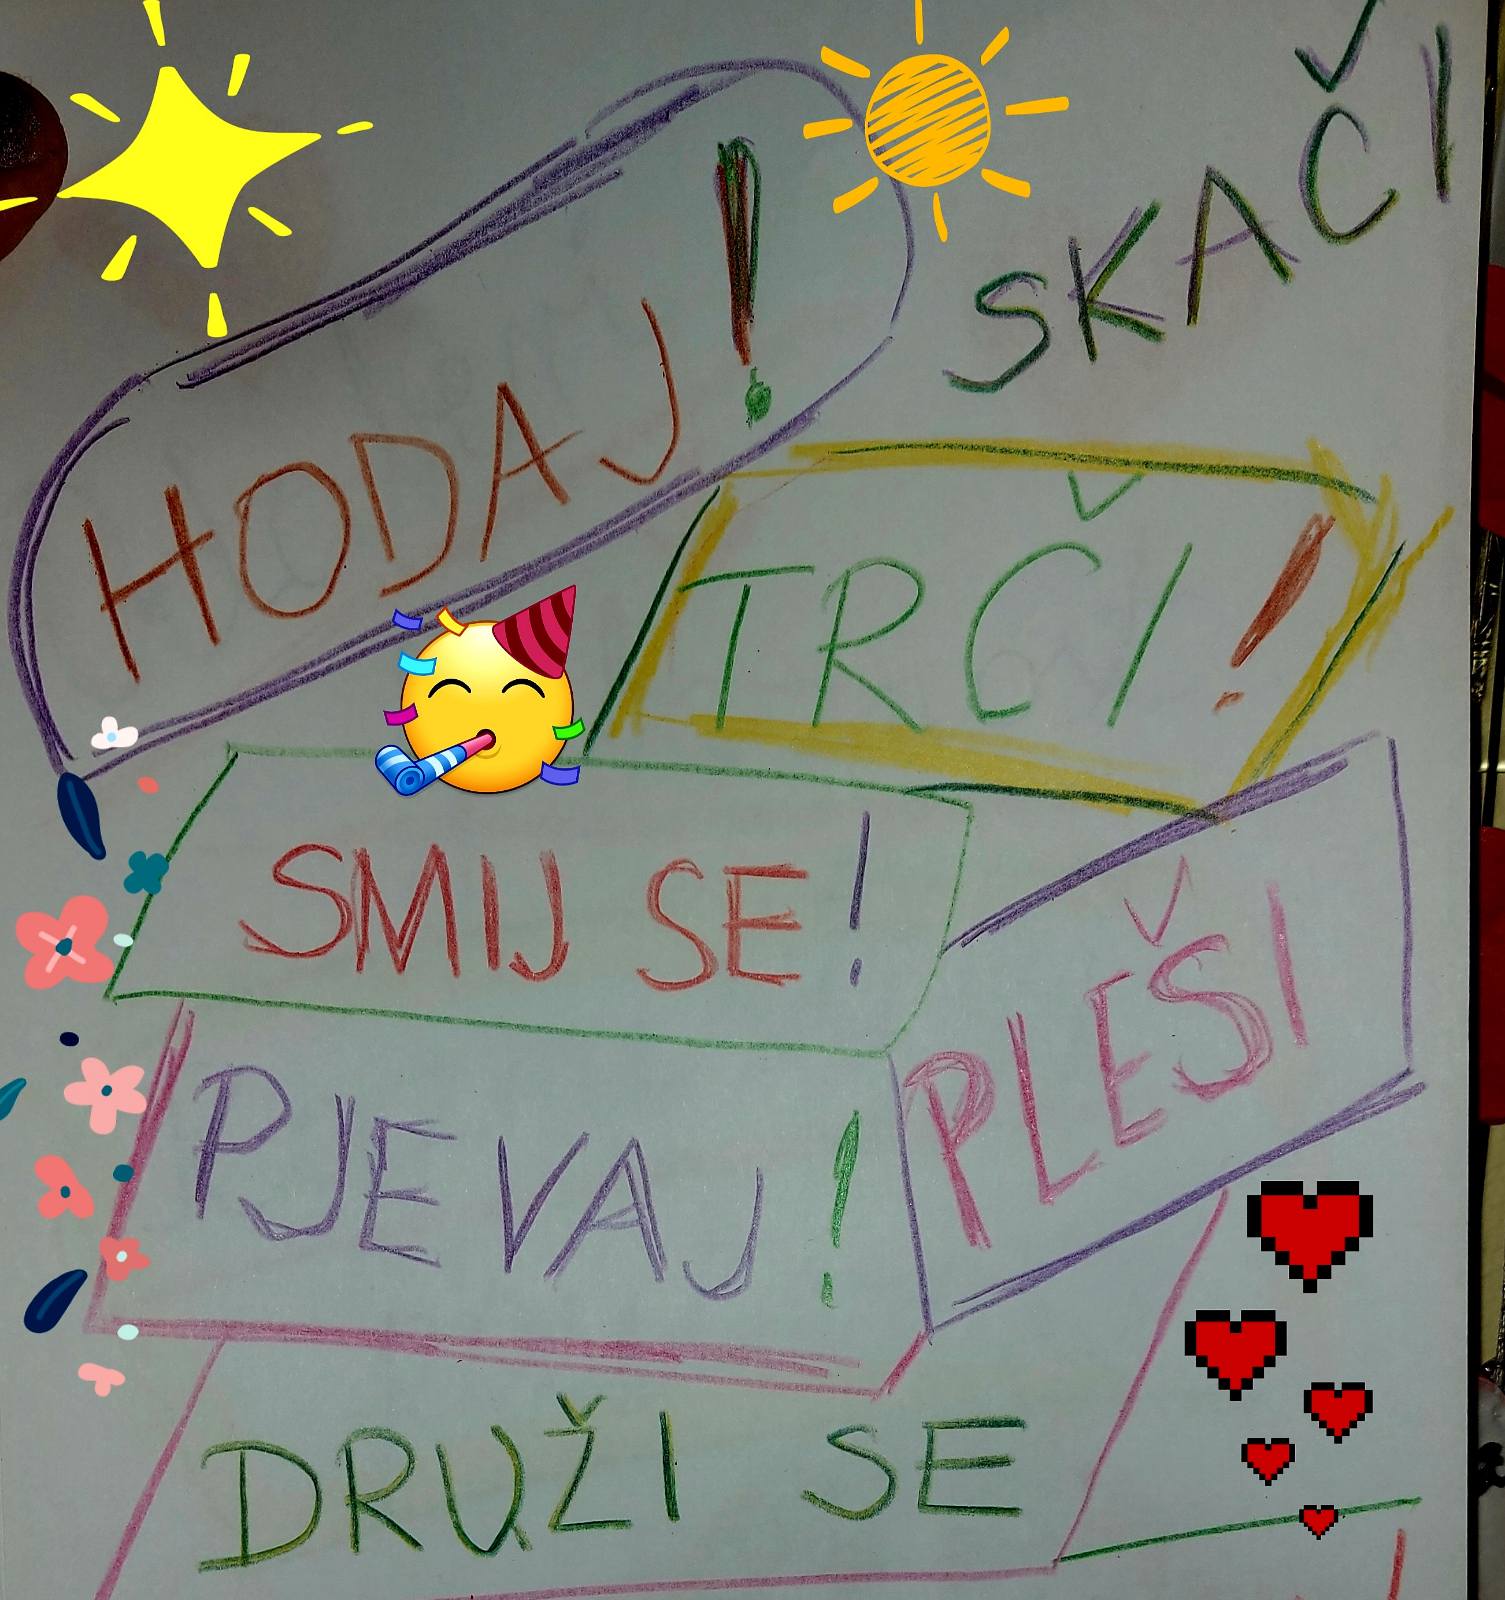 SKAČI
HODAJ!
TRČI!
SMIJ SE!
PLEŠI
PJEVAJ!
DRUŽI SE